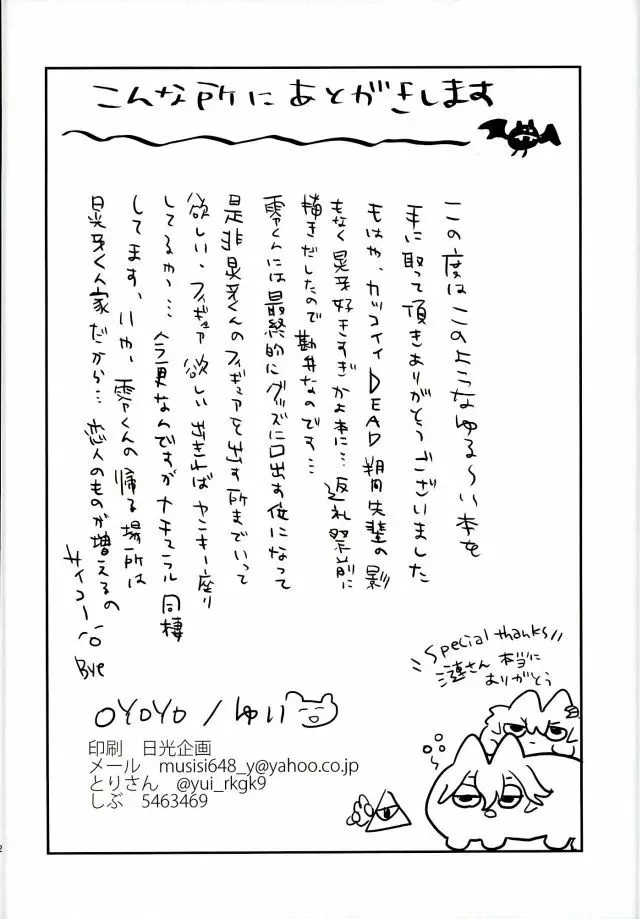 こんな所にあとがきします
この度はこのようなゆる〜い本を
手に取って頂きありがとうございました
もはや、カッコイイDEAD朔間先輩の影
もなく晃牙好きすぎかよ本に…返礼祭前に
描きだしたので勘弁なのです…
零くんには最終的にグッズに口出す位になって
是非晃牙くんのフィギュアを出す所までいって
欲しい、フィギュア欲しい出きればヤンキー座り
してるやつ…今更なんですがナチュラル同棲
してます、いや、零くんの帰る場所は
晃牙くん家だから…恋人のものが増えるの
サイコー
Bye
Special thanks!!
さん 本当に
ありがとう
OYOYO/ゆい
印刷 日光企画
メール musisi648_y@yahoo.co.jp
とりさん @yui_rkgk9
しぶ 5463469